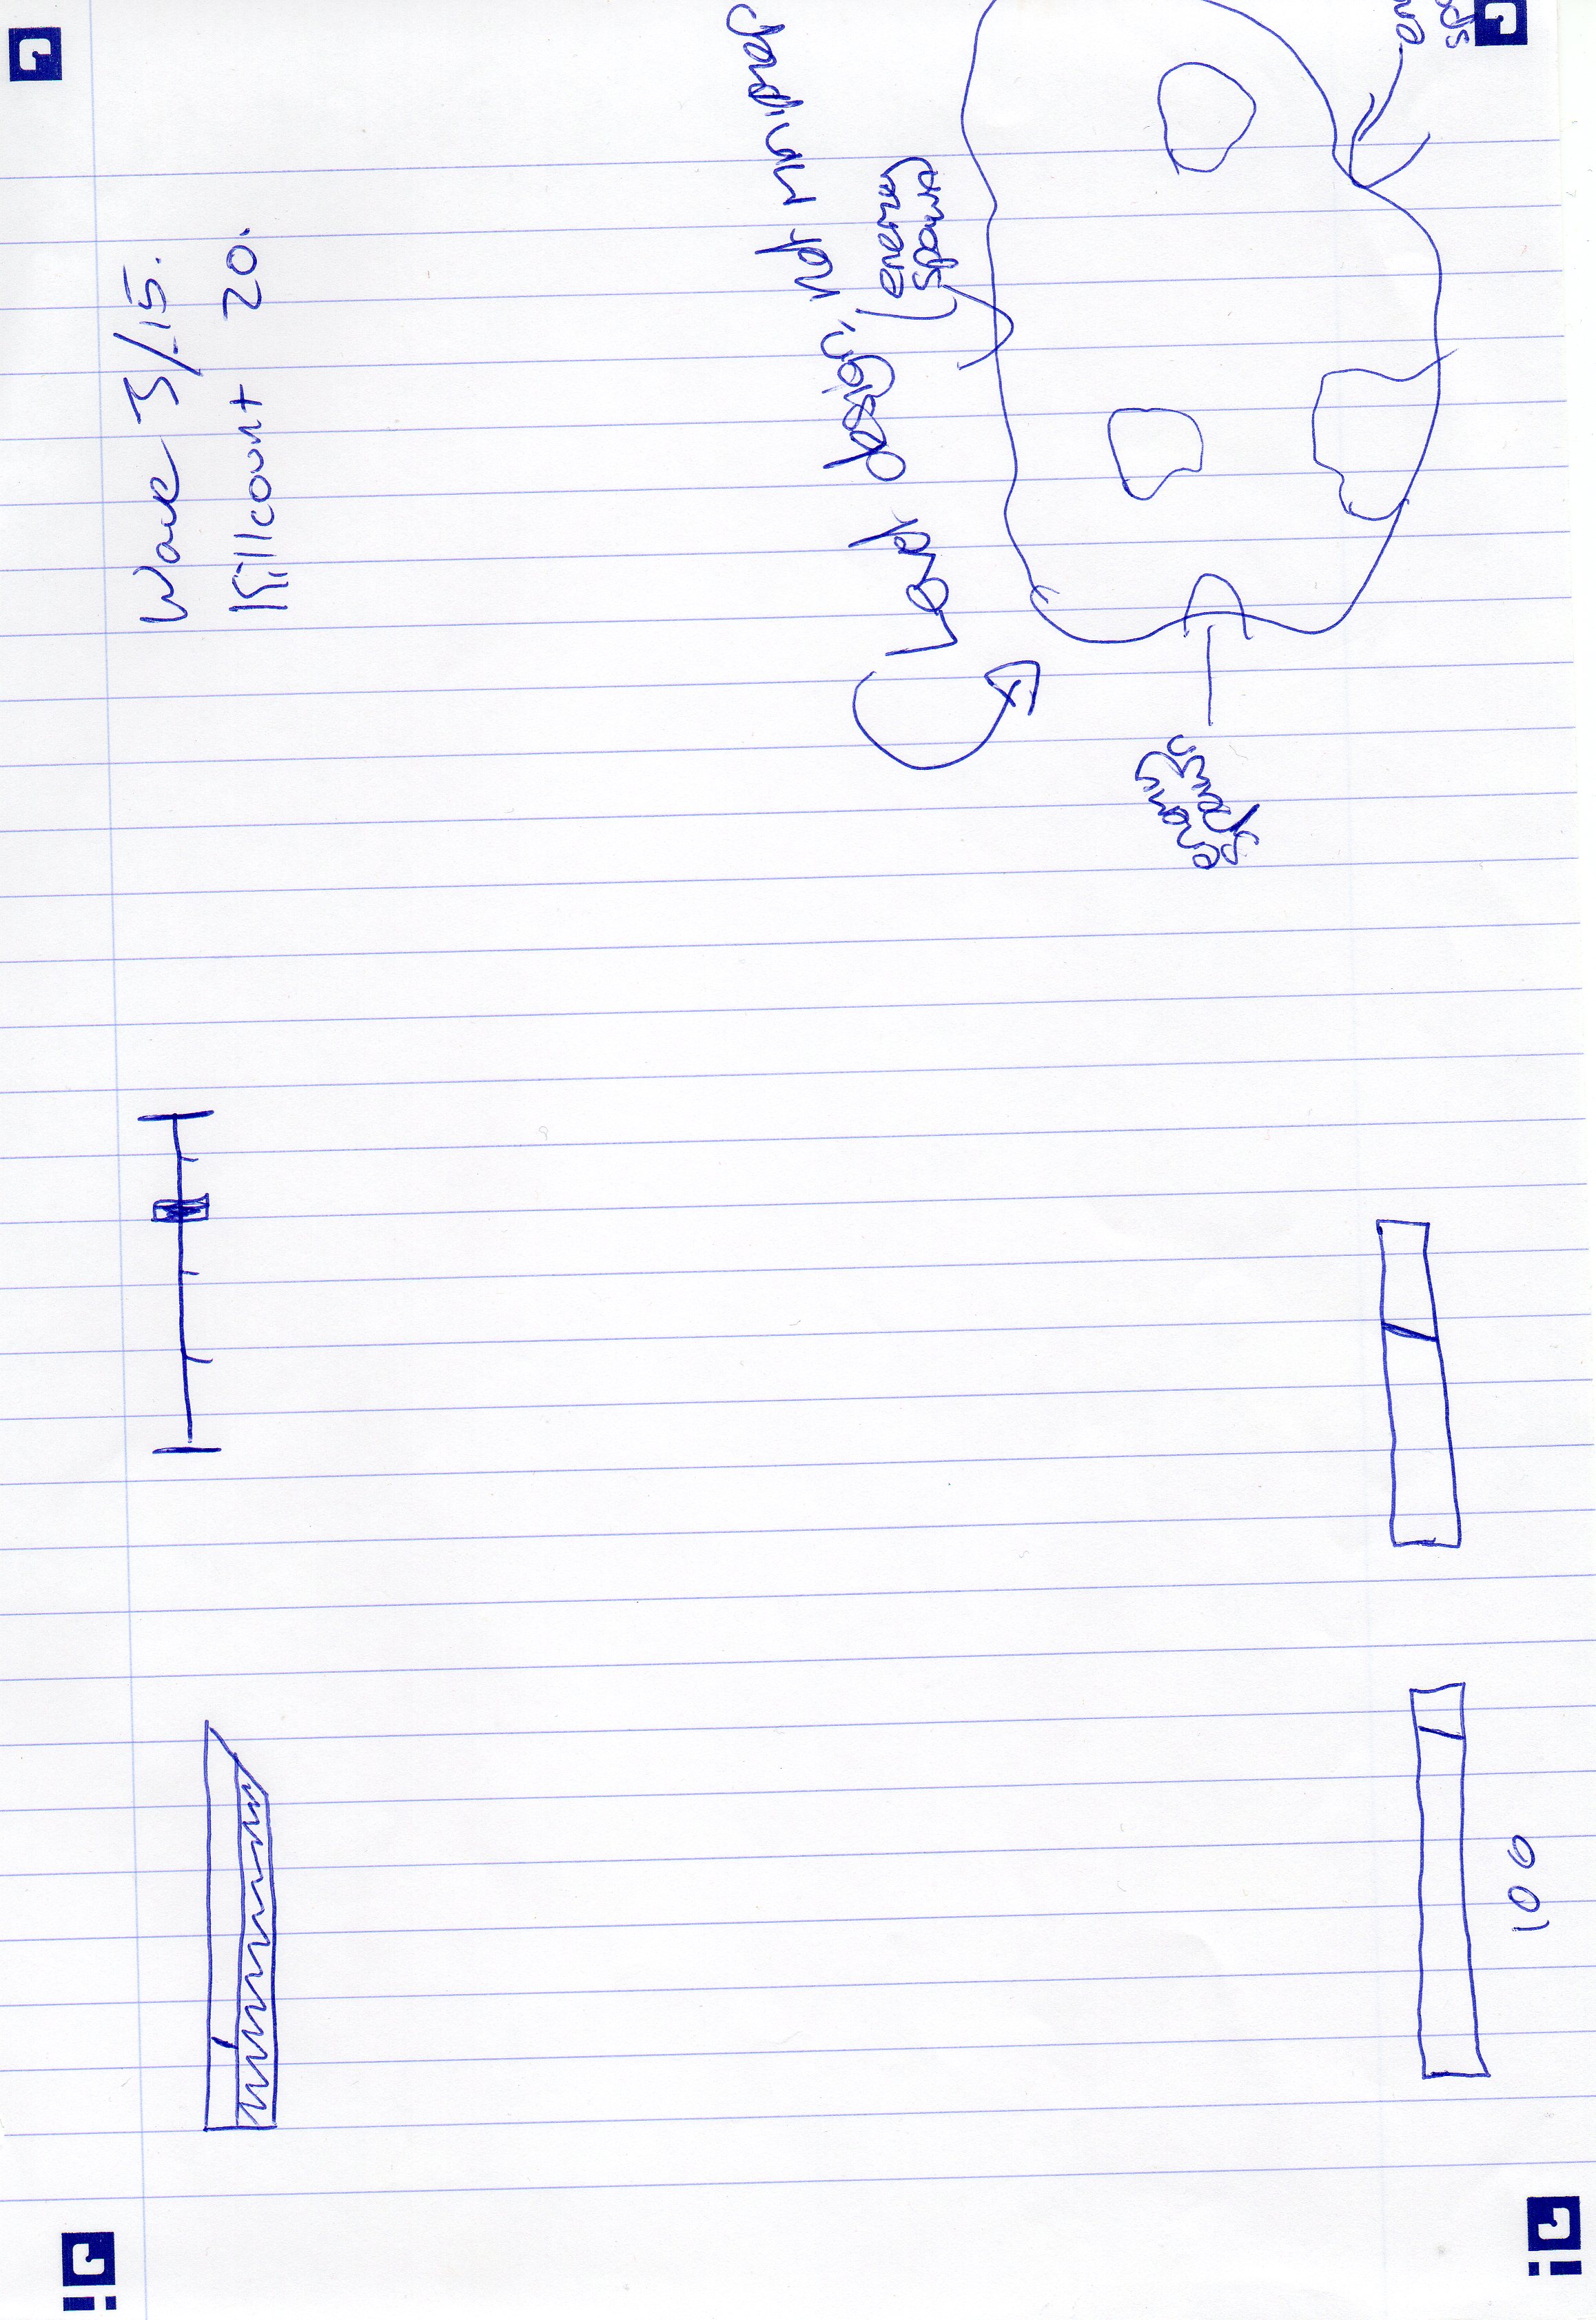 Wave 3/15.
Killcount 20.
Level design, not minimap
enemy
spawn
enemy
spawn
100